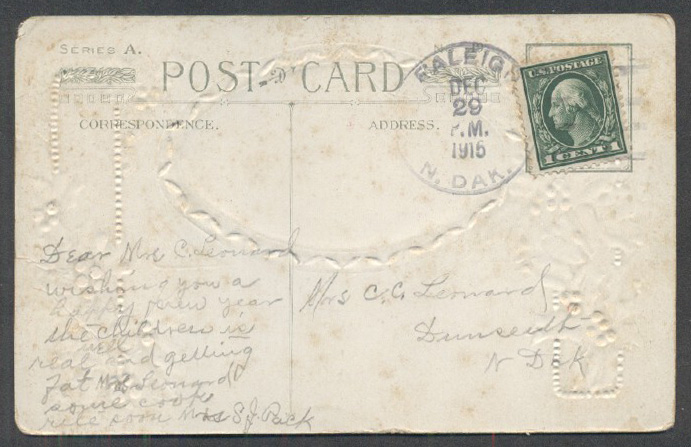 SERIES A.
POST CARD
CORRESPONDENCE.
ADDRESS.
RALEIGH
DEC
29
P.M.
1915
N. DAK.
U.S. POSTAGE
1 CENT 1
Dear Mrs C. Leonard
wishing you a
Happy New year
the children is
well
real and getting
fat Mrs Leonard
some cook
rite soon Mrs S J Pack
Mrs C. C. Leonard
Dunseith
N Dak